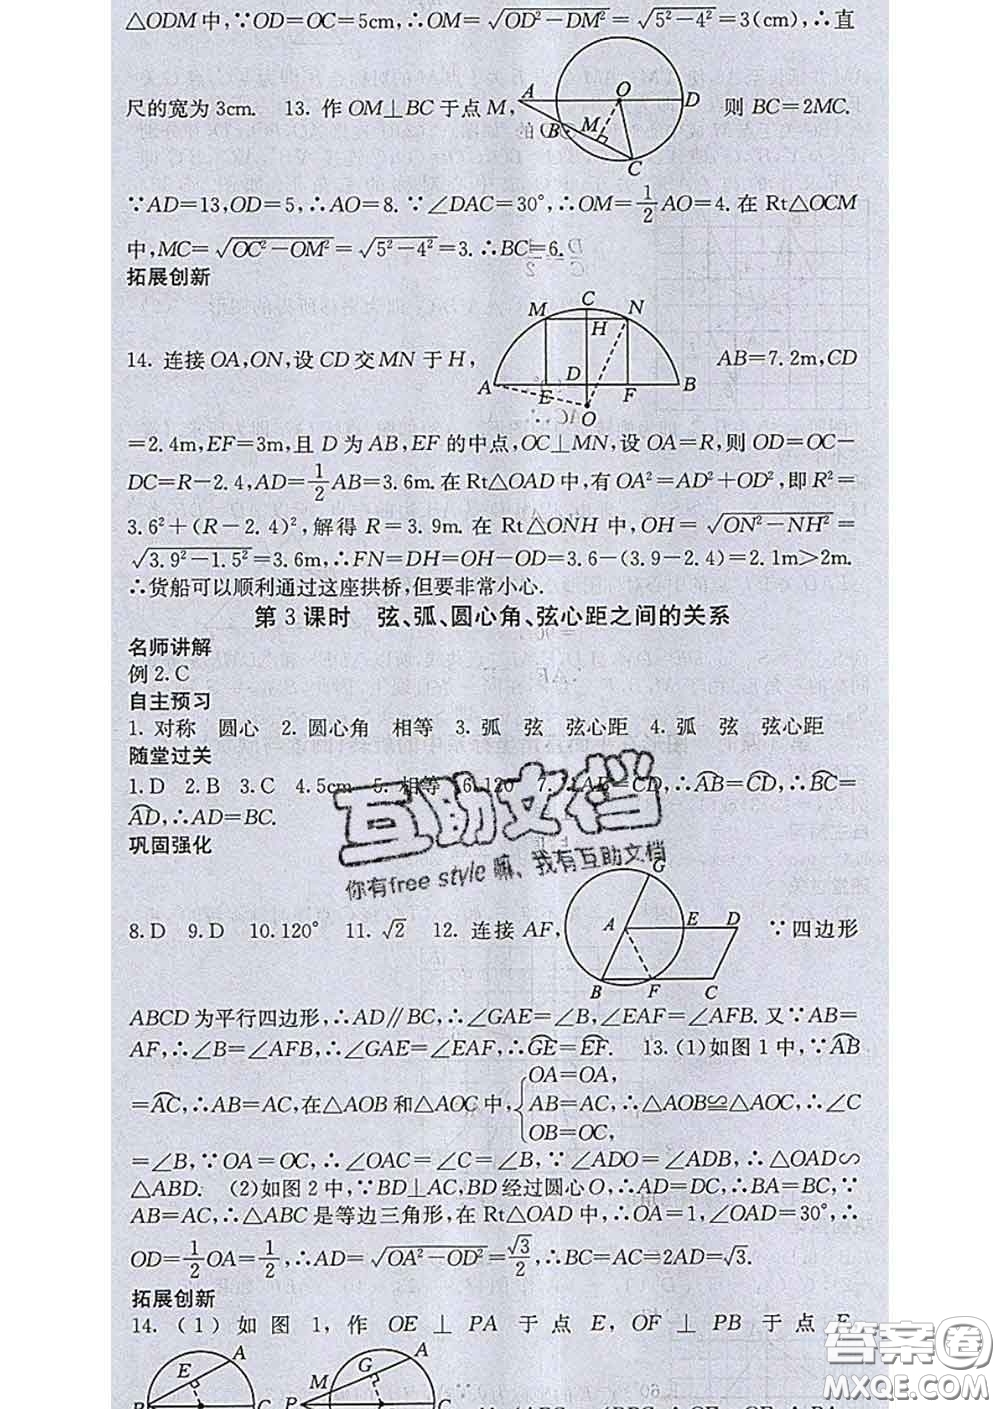 △ODM中,∵OD=OC=5cm,∴OM=√(OD²-DM²)=√(5²-4²)=3(cm),∴直
尺的宽为3cm. 13. 作OM⊥BC于点M, A O D B M C 则BC=2MC.
∵AD=13,OD=5,∴AO=8.∵∠DAC=30°,∴OM=1/2AO=4.在Rt△OCM
中,MC=√(OC²-OM²)=√(5²-4²)=3.∴BC=6.
拓展创新
M C N H
14. 连接OA,ON,设CD交MN于H, A E D F B O AB=7.2m,CD
=2.4m,EF=3m,且D为AB,EF的中点,OC⊥MN,设OA=R,则OD=OC-
DC=R-2.4,AD=1/2AB=3.6m.在Rt△OAD中,有OA²=AD²+OD²,即R²=
3.6²+(R-2.4)²,解得R=3.9m.在Rt△ONH中,OH=√(ON²-NH²)=
√(3.9²-1.5²)=3.6m,∴FN=DH=OH-OD=3.6-(3.9-2.4)=2.1m>2m.
∴货船可以顺利通过这座拱桥,但要非常小心.
第3课时 弦、弧、圆心角、弦心距之间的关系
名师讲解
例2.C
自主预习
1. 对称 圆心 2. 圆心角 相等 3. 弧 弦 弦心距 4. 弧 弦 弦心距
随堂过关
1.D 2.B 3.C 4.5cm 5. 相等 6.120 7.∵AB=CD,∴⌒AB=⌒CD,∴⌒BC=
⌒AD,∴AD=BC.
互助文档
你有free style嘛、我有互助文档
巩固强化
8.D 9.D 10.120° 11.√2 12. 连接AF, G A E D B F C ∵四边形
ABCD为平行四边形,∴AD∥BC,∴∠GAE=∠B,∠EAF=∠AFB.又∵AB=
AF,∴∠B=∠AFB,∴∠GAE=∠EAF,∴⌒GE=⌒EF. 13.(1)如图1中,∵⌒AB
=⌒AC,∴AB=AC,在△AOB和△AOC中,{OA=OA, AB=AC, OB=OC, ∴△AOB≌△AOC,∴∠C
=∠B,∵OA=OC,∴∠OAC=∠C=∠B,∵∠ADO=∠ADB,∴△OAD∽
△ABD. (2)如图2中,∵BD⊥AC,BD经过圆心O,∴AD=DC,∴BA=BC,∵
AB=AC,∴△ABC是等边三角形,在Rt△OAD中,∵OA=1,∠OAD=30°,∴
OD=1/2OA=1/2,∴AD=√(OA²-OD²)=√3/2,∴BC=AC=2AD=√3.
拓展创新
14.(1)如图1,作OE⊥PA于点E,OF⊥PB于点F,
E A M G A P C
答案圈
MXQE.COM